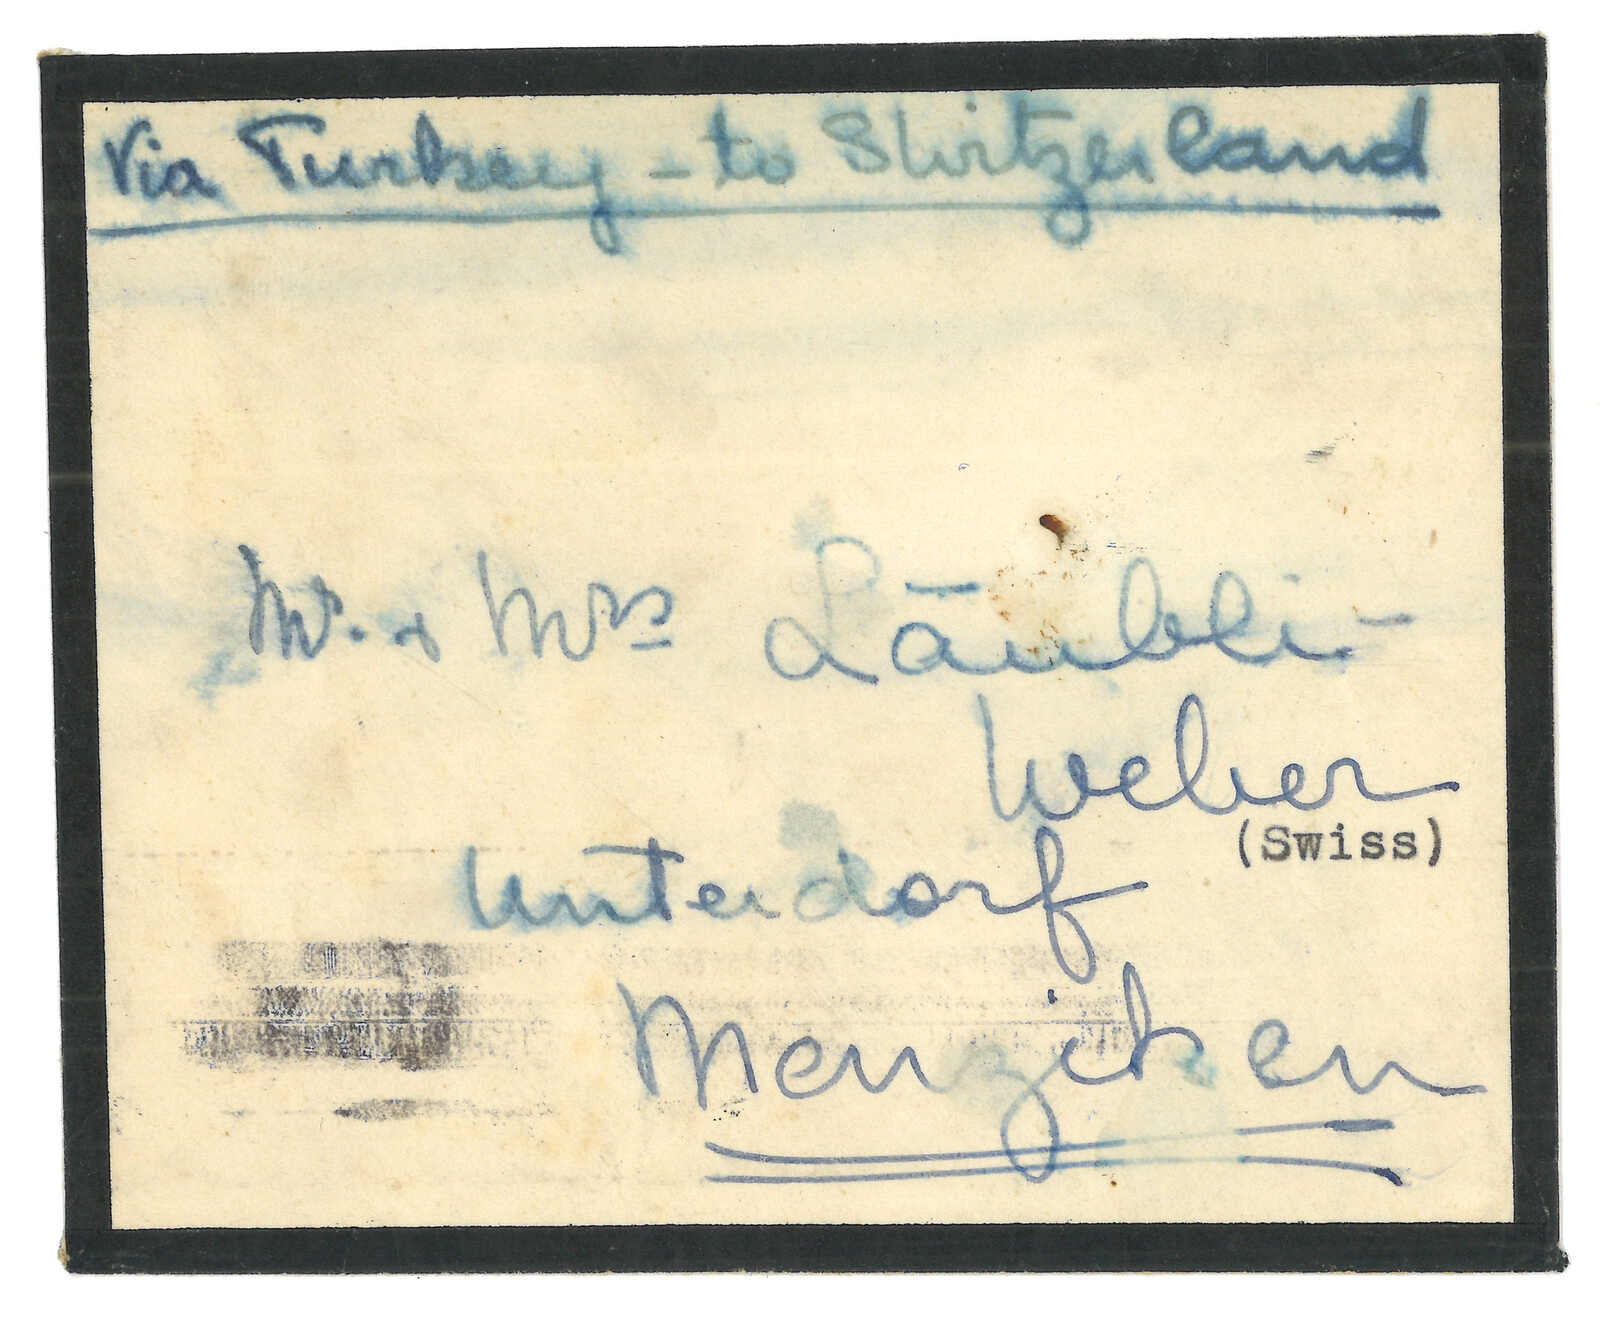 Via Turkey - to Switzerland
Mr. & Mrs Läubli-
Weber
(Swiss)
Unterdorf
Menziken